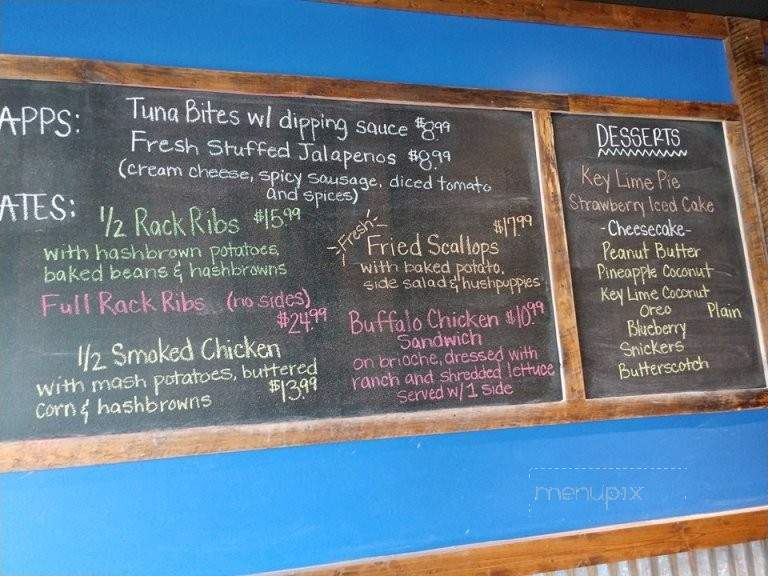 APPS:
Tuna Bites w/ dipping sauce $8.99
Fresh Stuffed Jalapenos $8.99
(cream cheese, spicy sausage, diced tomato
and spices)
ATES:
1/2 Rack Ribs $15.99
with hashbrown potatoes,
baked beans & hashbrowns
Full Rack Ribs (no sides)
$24.99
1/2 Smoked Chicken
with mash potatoes, buttered
corn & hashbrowns $13.99
$17.99
-Fresh-
Fried Scallops
with baked potato,
side salad & hushpuppies
Buffalo Chicken $10.99
Sandwich
on brioche, dressed with
ranch and shredded lettuce
served w/ 1 side
DESSERTS
Key Lime Pie
Strawberry Iced Cake
-Cheesecake-
Peanut Butter
Pineapple Coconut
Key Lime Coconut
Oreo Plain
Blueberry
Snickers
Butterscotch
menupix